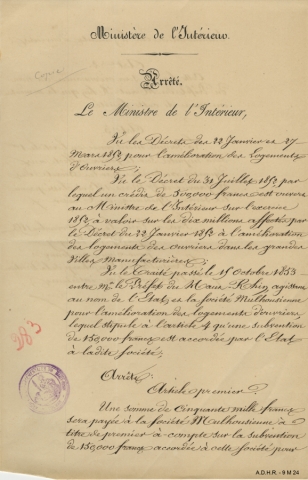 Ministère de l'Intérieur.
Copie
Arrêté.
Le Ministre de l'Intérieur,
Vu les Décrets des 22 Janvier et 27
Mars 1852 pour l'amélioration des Logements
d'Ouvriers;
Vu le Décret du 31 Juillet 1852 par
lequel un crédit de 500,000 francs est ouvert
au Ministre de l'Intérieur sur l'exercice
1852 à valoir sur les dix millions affectés par
le Décret du 22 Janvier 1852 à l'amélioration
des logements des ouvriers dans les grandes
Villes manufacturières;
Vu le Traité passé le 15 Octobre 1853
entre M. le Préfet du Haut Rhin, agissant
au nom de l'Etat, et la Société Mulhousienne
pour l'amélioration des logements d'ouvriers,
lequel stipule à l'article 4 qu'une subvention
de 150,000 francs est accordée par l'Etat
à ladite Société;
283
Arrête
Article premier.
Une somme de Cinquante mille francs
sera payée à la Société Mulhousienne à
titre de premier à compte sur la subvention
de 150,000 francs accordée à cette Société pour
A.D.H.R. - 9 M 24